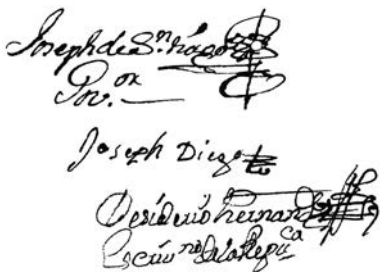 Joseph de Sn. tiago
Gov.or
Joseph Diego
Desiderio hernand
Escriuno de la Repuca